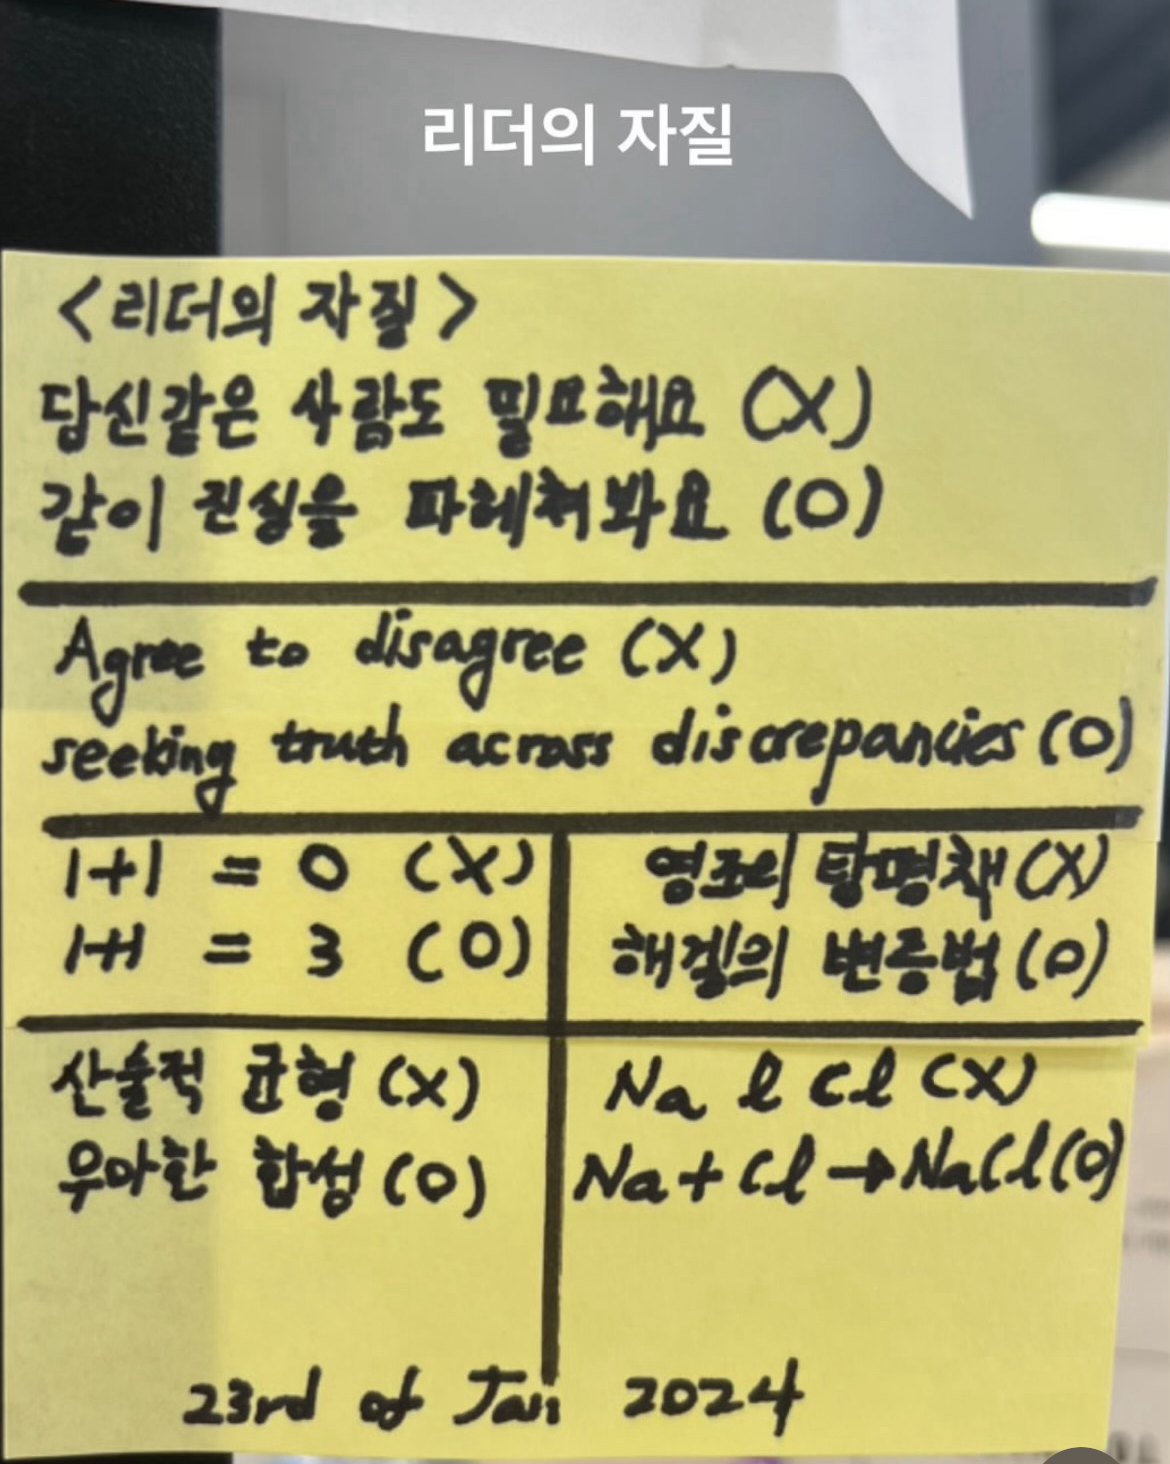 리더의 자질
<리더의 자질>
당신같은 사람도 필요해요 (X)
같이 진실을 파헤쳐봐요 (O)
Agree to disagree (X)
seeking truth across discrepancies (O)
1+1 = 0 (X)
1+1 = 3 (O)
영조의 탕평책 (X)
헤겔의 변증법 (O)
산술적 균형 (X)
우아한 합성 (O)
Na & Cl (X)
Na + Cl → NaCl (O)
23rd of Jan 2024